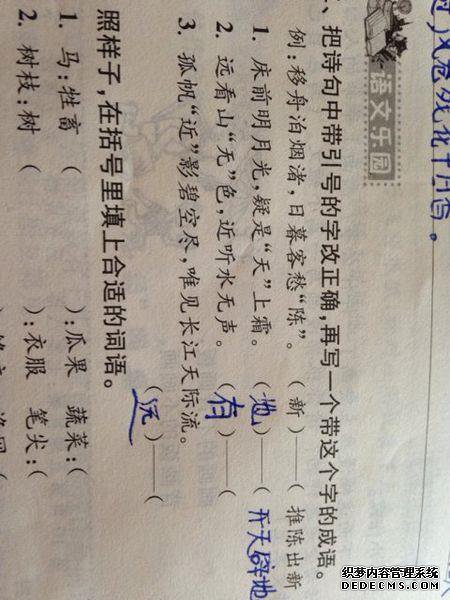 语文乐园
、把诗句中带引号的字改正确,再写一个带这个字的成语。
例:移舟泊烟渚,日暮客愁“陈”。 (新)——(推陈出新
1. 床前明月光,疑是“天”上霜。 (地)——(开天辟地
2. 远看山“无”色,近听水无声。 (有)——(
3. 孤帆“近”影碧空尽,唯见长江天际流。
(远)——(
照样子,在括号里填上合适的词语。
1. 马:牲畜 ( ):瓜果 蔬菜:(
2. 树枝:树 ( ):衣服 笔尖:(
织梦内容管理系统
DEDECMS.COM